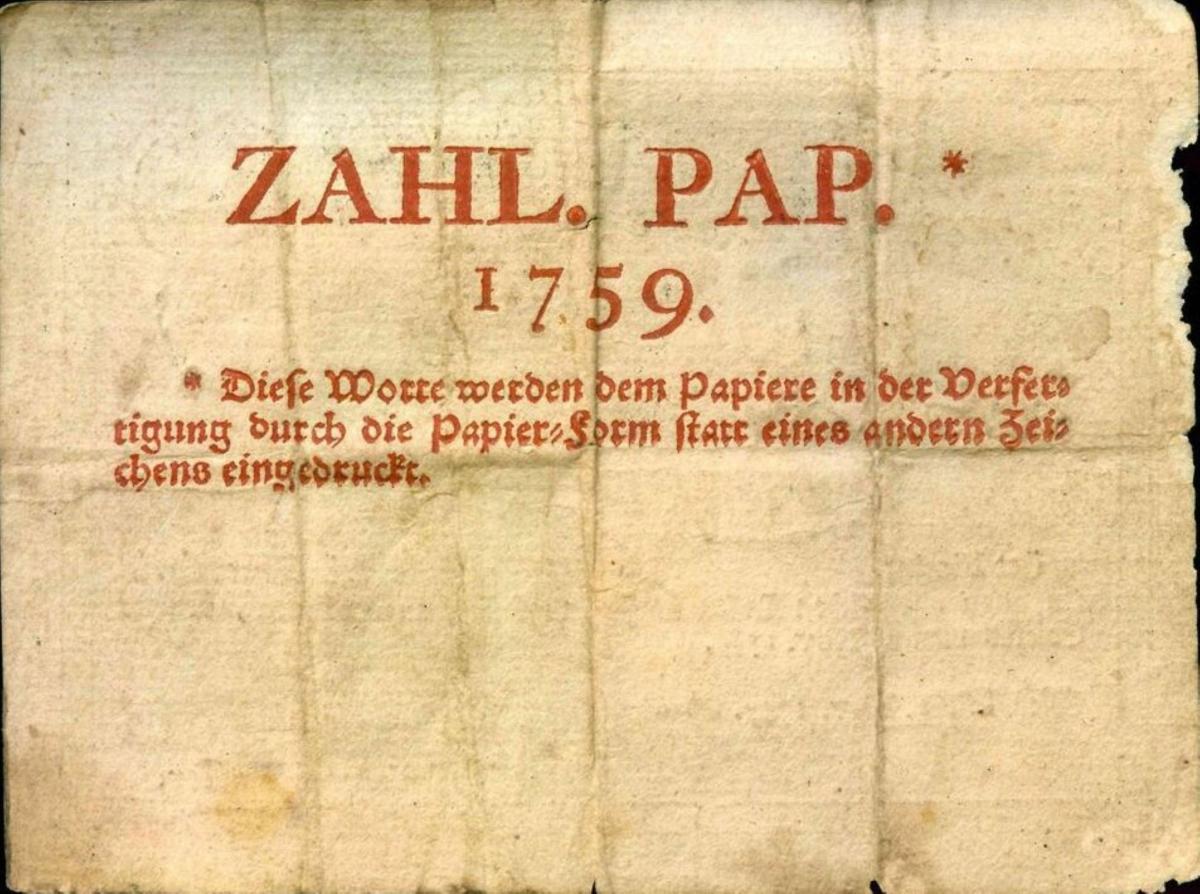 ZAHL. PAP. *
1759.
* Diese Worte werden dem Papiere in der Verfer⸗
tigung durch die Papier⸗Form statt eines andern Zei⸗
chens eingedruckt.